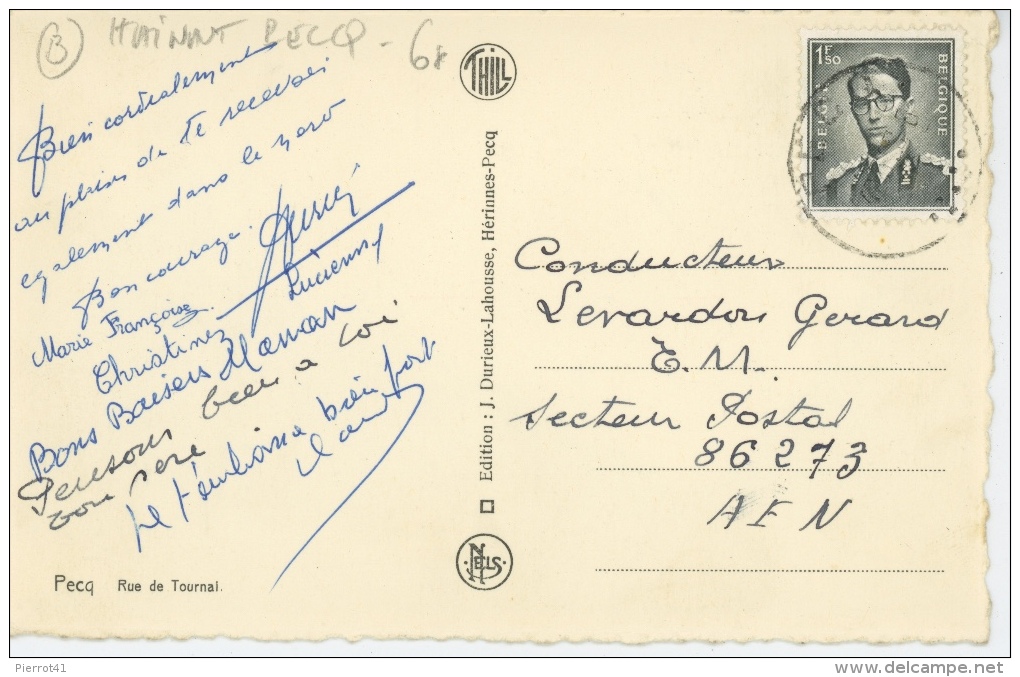 B HAINAUT PECQ - 68
Bien cordialement
au plaisir de te recevoir
egalement dans le nord
Bon courage.
Marie Françoise.
Lucienne
Christine
Bons Baisers Maman
Pensons bien a toi
ton Pere
Je t'embrasse bien fort
Pecq Rue de Tournai.
THILL
Edition : J. Durieux-Lahousse, Hérinnes-Pecq
NELS
1F50
BELGIE BELGIQUE
Conducteur
Levardon Gerard
E.M.
Secteur Postal
86273
AFN
Pierrot41
www.delcampe.net